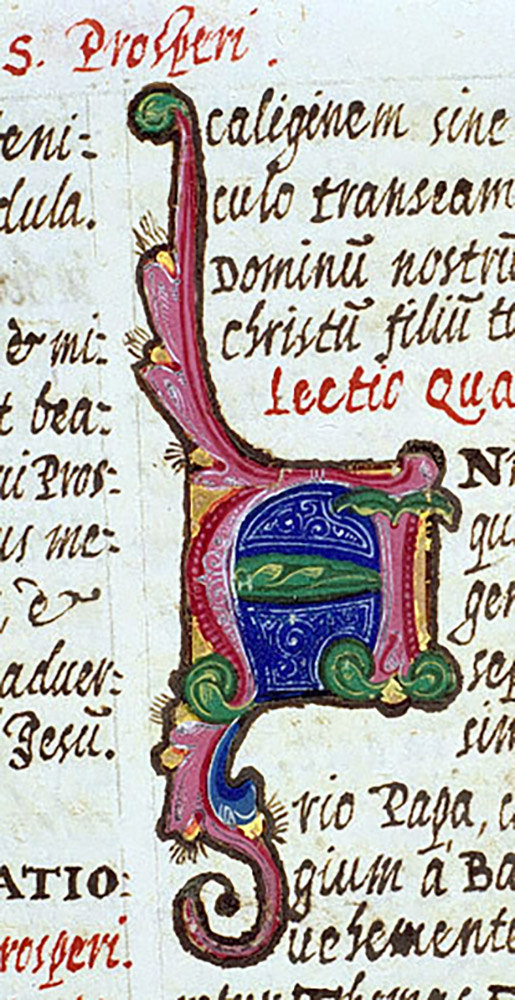 s. Prosperi.
eni-
dula.
& mi-
t bea-
ui Pros-
us me-
, &
aduer-
Jesu.
ATIO
rosperi.
caliginem sine
culo transeam
Dominū nostrū
christū filiū
Lectio Qua
A
N
qu
gen
sep
sim
rio Papa,
gium à Ba
uehemente